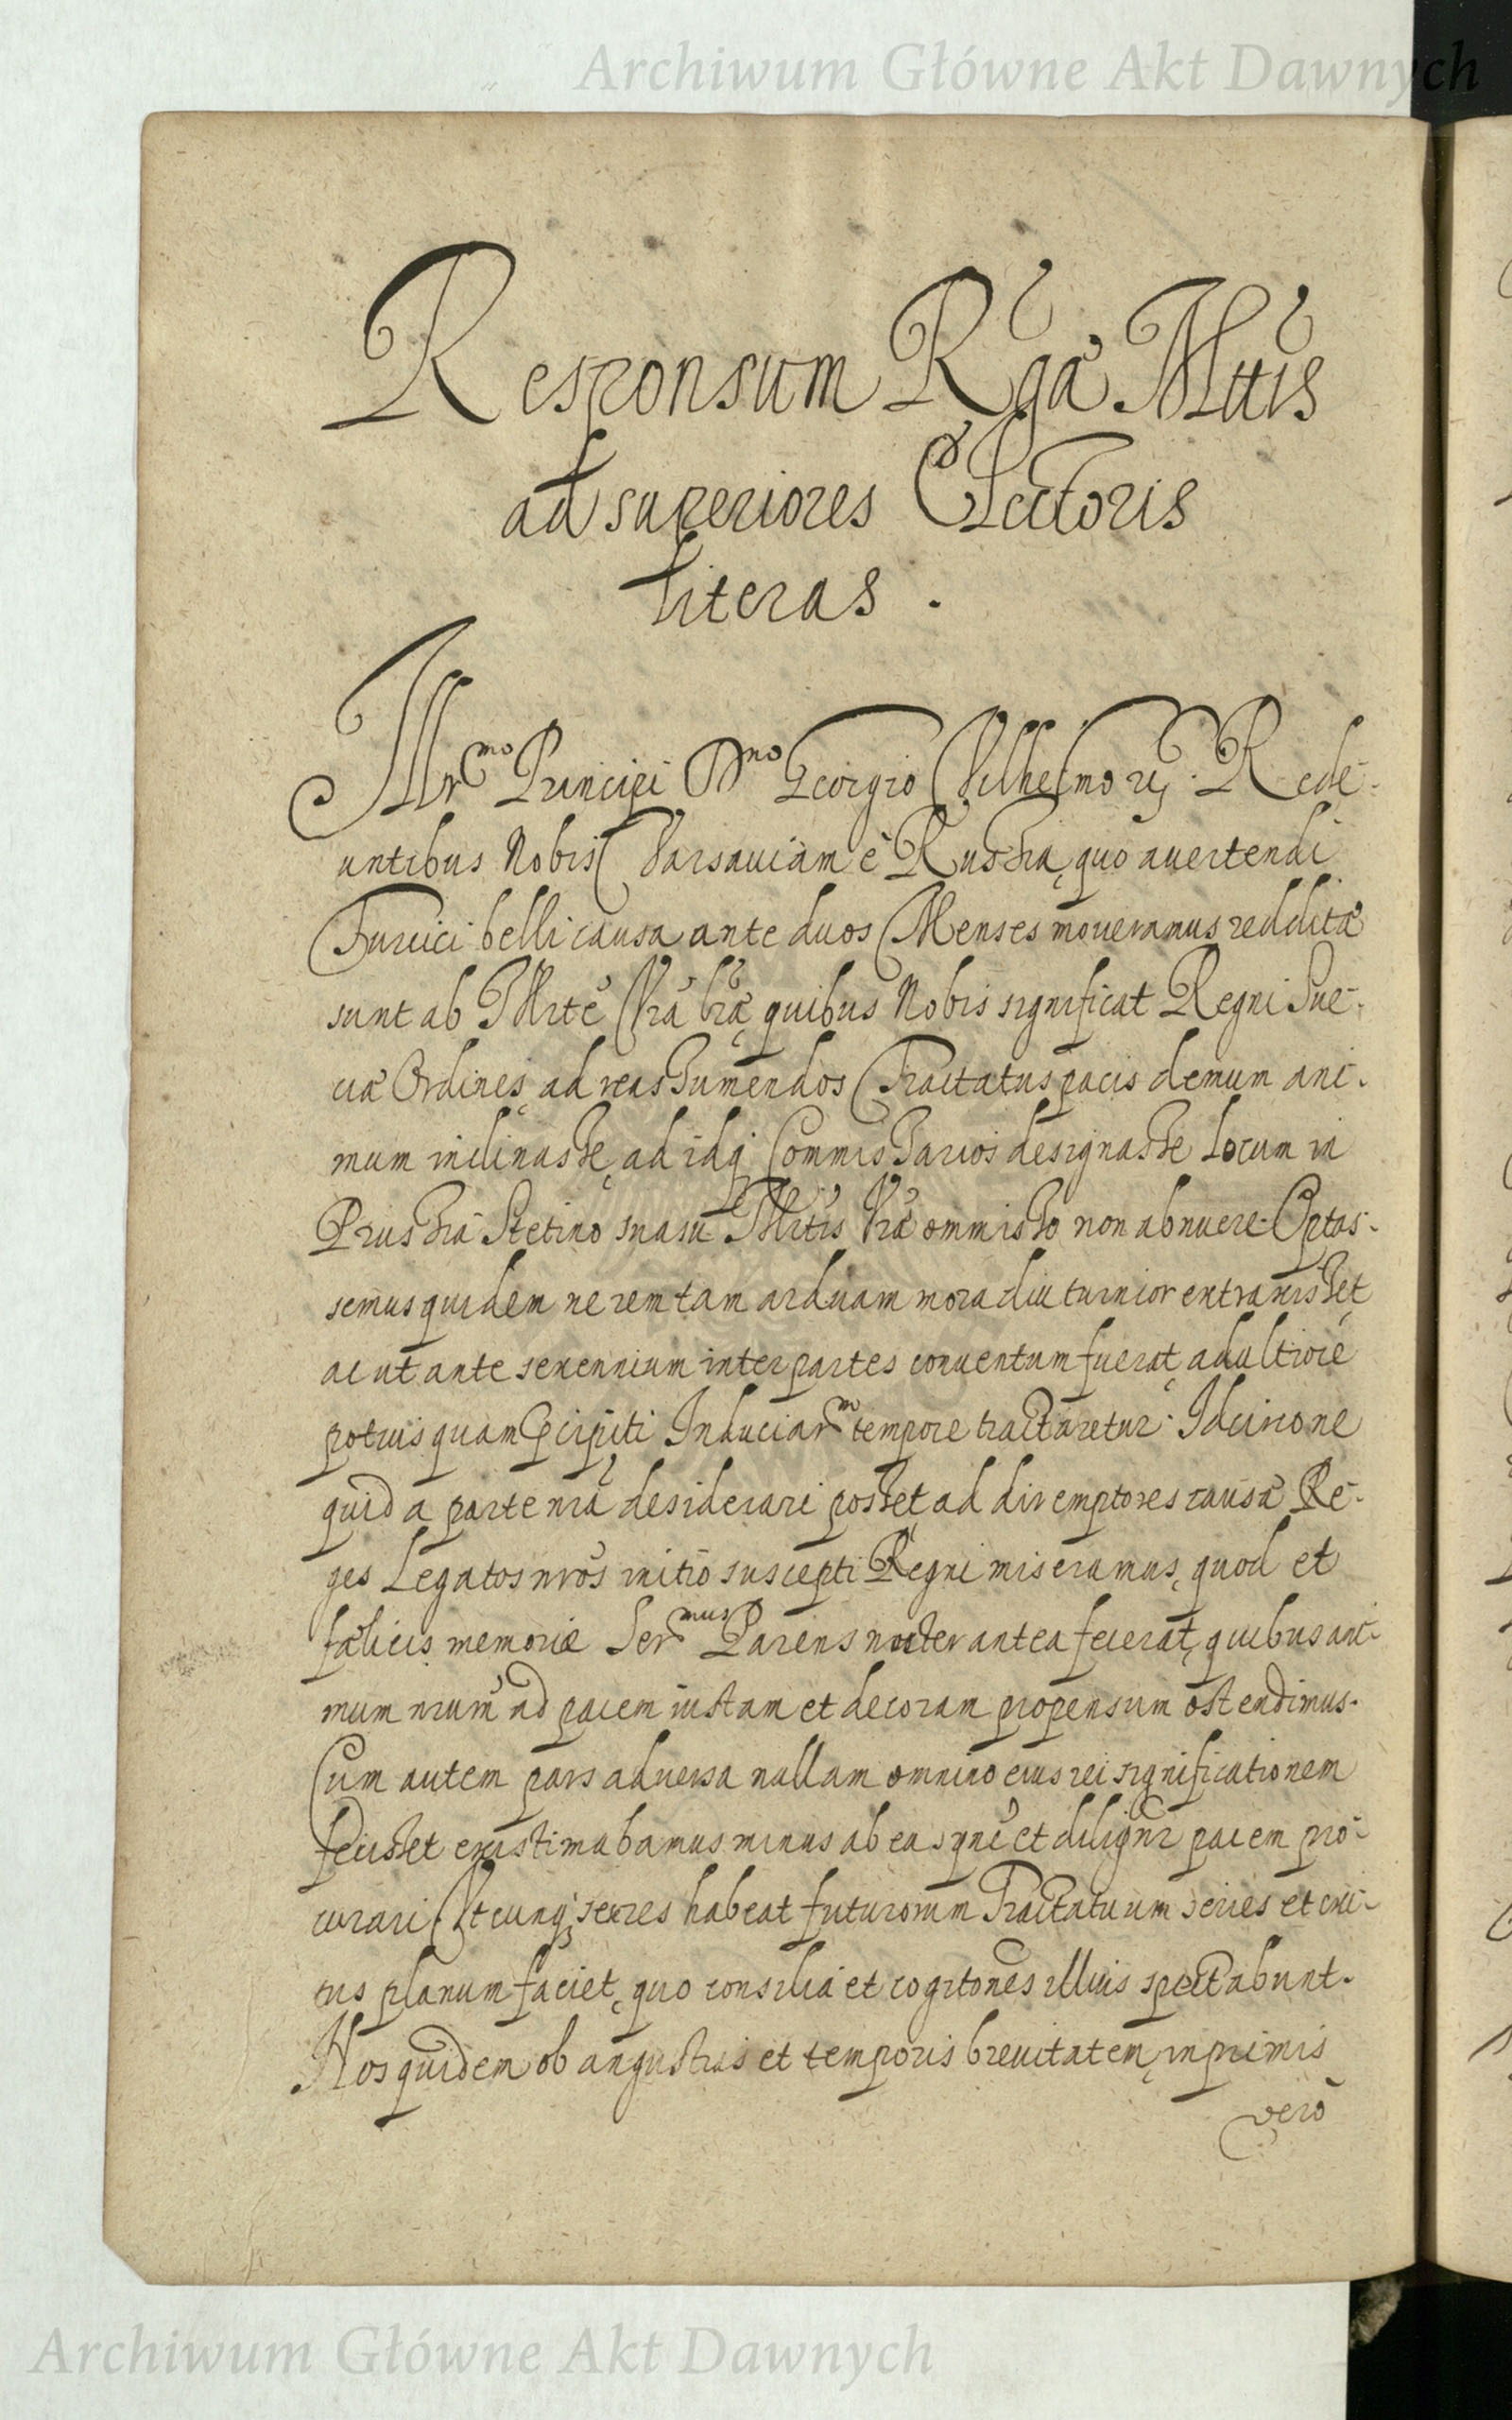 Archiwum Główne Akt Dawnych
Responsum Rgæ Mttis
ad superiores Electoris
literas .
Illrmo Principi Dno Georgio Vilhelmo rc. Rede-
untibus Nobis Varsauiam è Russia, quo auertendi
Turcici belli causa ante duos Menses moueramus redditæ
sunt ab Illrte Vra lræ, quibus Nobis significat Regni Sue-
ciæ Ordines, ad reassumendos Tractatus pacis demum ani-
mum inclinasse, ad idq Commissarios designasse locum in
Prussia Stetino suasu Illrtis Vræ ommisso non abnuere. Optas-
semus quidem ne rem tam arduam mora diuturnior extraxisset,
ac ut ante sexennium inter partes conuentum fuerat, ad ultiore
potius quam pcipiti Induciarm tempore tractaretur. Idcirco ne
quid a parte nra desiderari posset ad diremptores causæ Re-
ges Legatos nros initio suscepti Regni miseramus, quod et
fælicis memoriæ Sermus Parens noster antea fecerat, quibus ani-
mum nrum ad pacem iustam et decoram propensum ostendimus.
Cum autem pars aduersa nullam omnino eius rei significationem
fecisset existimabamus minus ab ea et pacem pro-
curari. Utcunq se res habeat futurorum Tractatuum series et exi-
tus planum faciet, quo consilia et cogitones illius spectabunt.
Nos quidem ob angustias et temporis breuitatem, inprimis
vero
Archiwum Główne Akt Dawnych